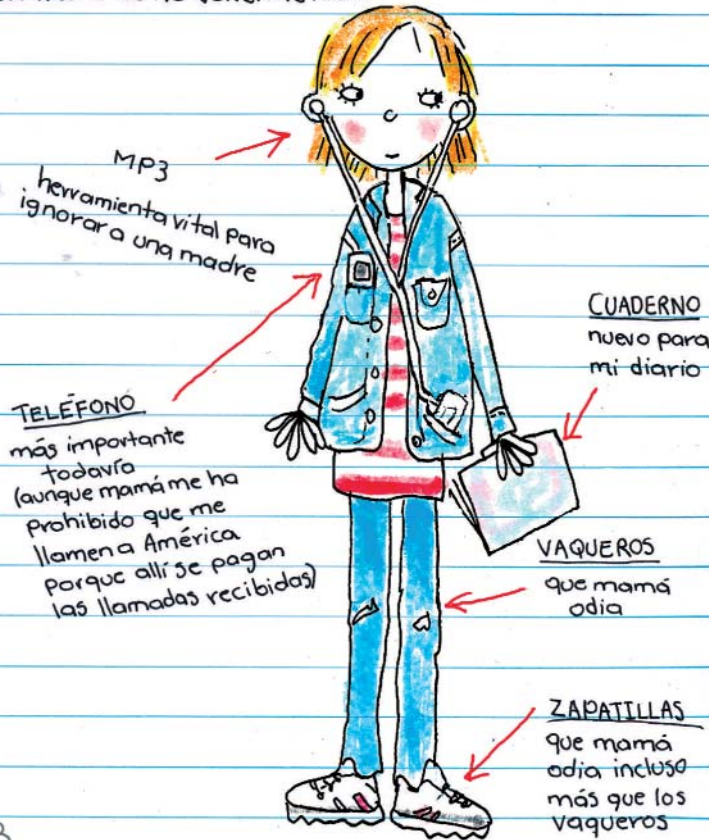 MP3
herramienta vital para
ignorar a una madre
TELÉFONO
más importante
todavía
(aunque mamá me ha
prohibido que me
llamen a América
porque allí se pagan
las llamadas recibidas)
CUADERNO
nuevo para
mi diario
VAQUEROS
que mamá
odia
ZAPATILLAS
que mamá
odia incluso
más que los
vaqueros